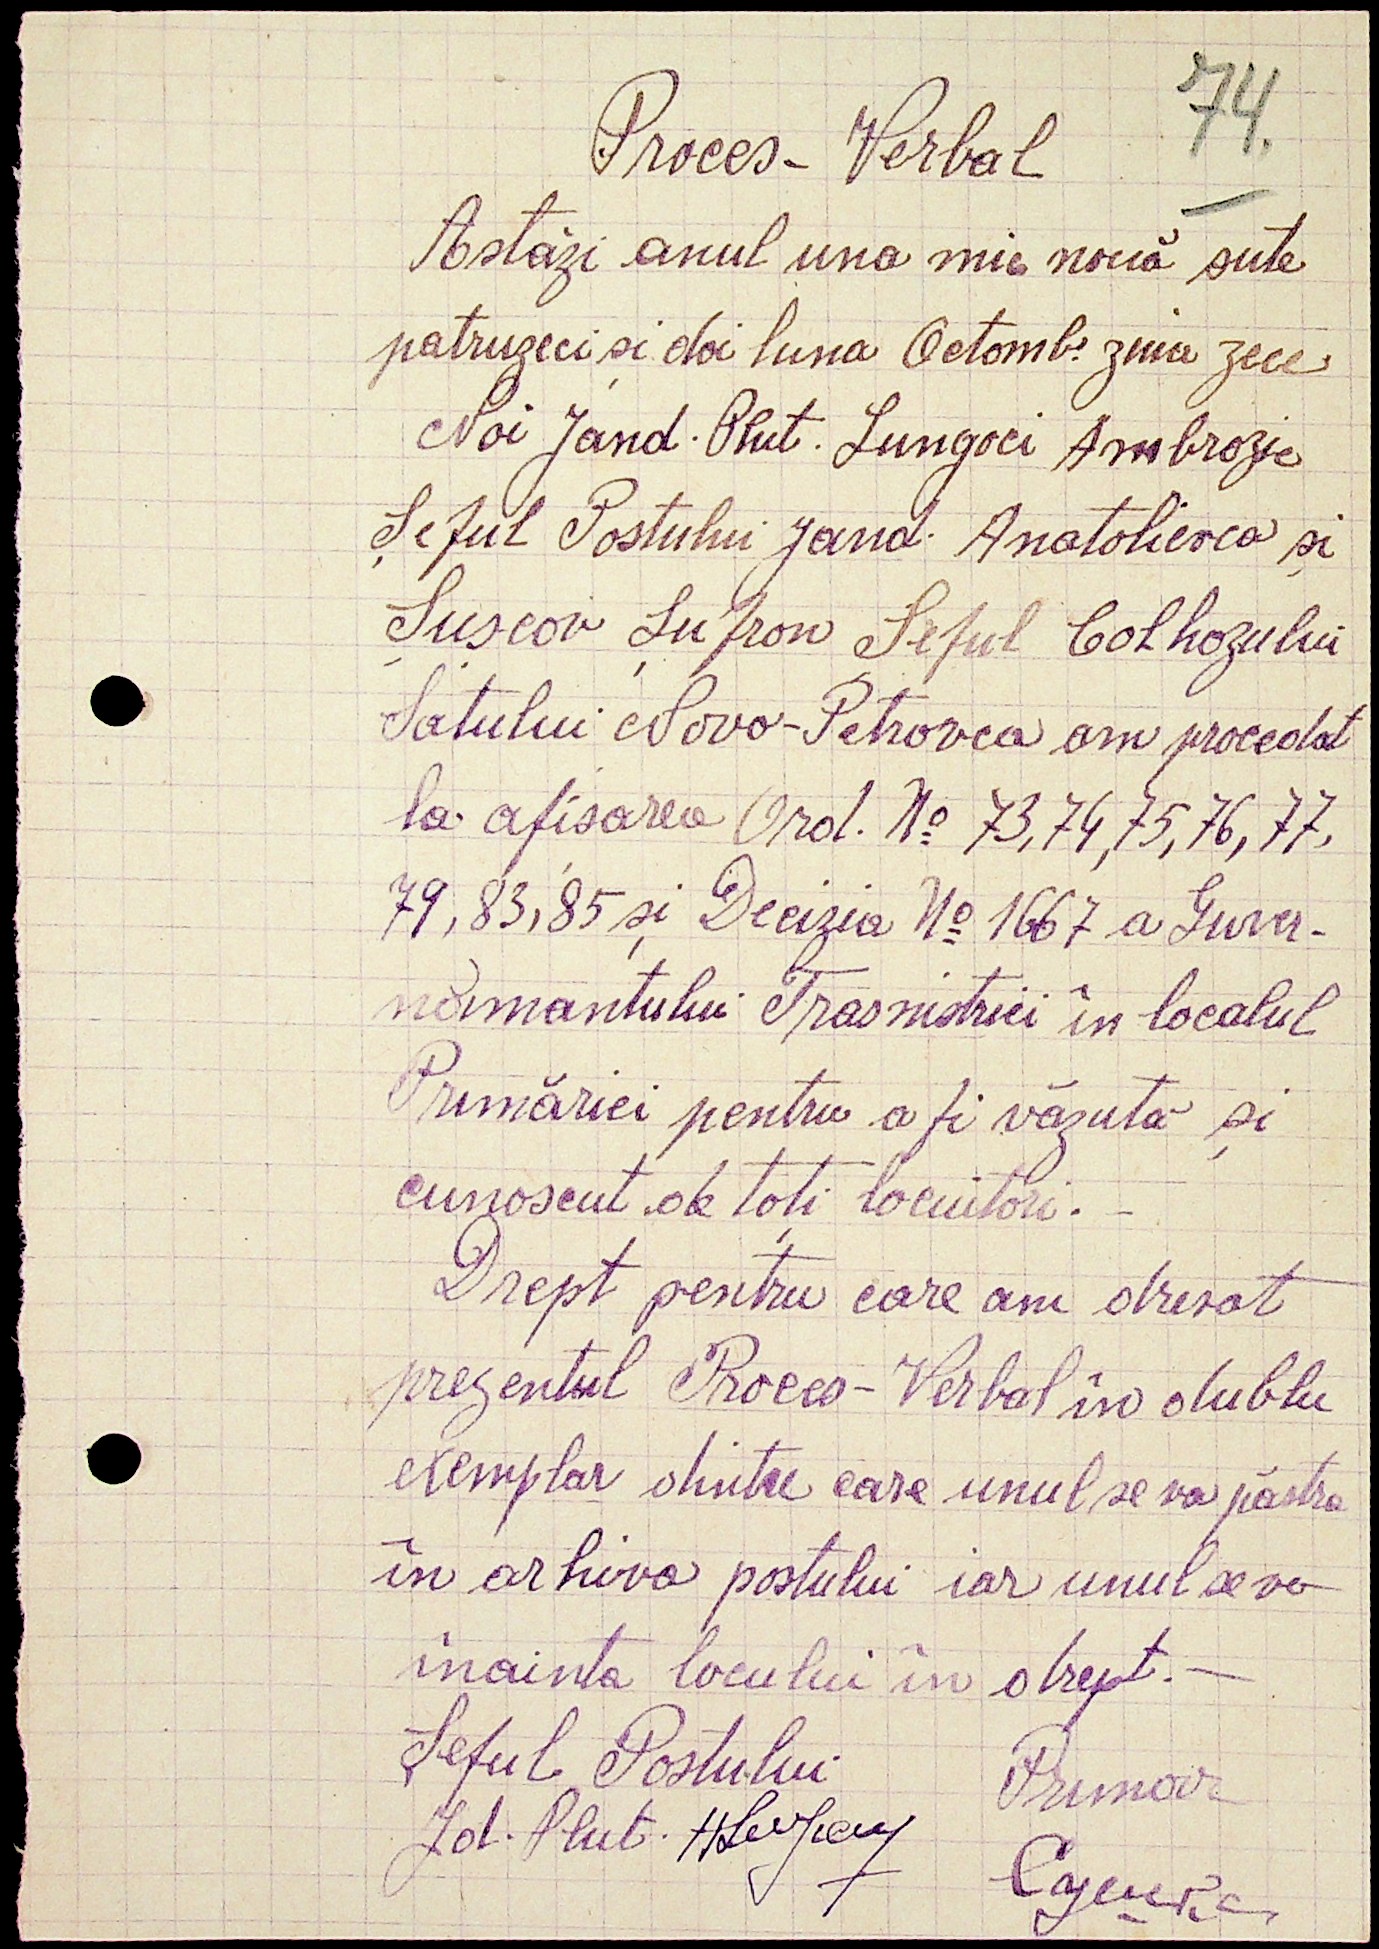 74.
Proces-Verbal
Astăzi anul una mie nouă sute
patruzeci și doi luna Octomb. ziua zece
Noi Jand. Plut. Lungoci Ambrozie
Șeful Postului Jand. Anatolievca și
Șuscov Șufron Șeful Colhozului
Satului Novo-Petrovca am procedat
la afisarea Ord. No 73, 74, 75, 76, 77,
79, 83, 85 și Decizia No 1667 a Guver-
nămantului Trasnistriei în localul
Primăriei pentru a fi văzută și
cunoscut de toți locuitori. -
Drept pentru care am dresat
prezentul Proces-Verbal în dublu
exemplar dintre care unul se va păstra
în arhiva postului iar unul se va
înainta locului în drept. -
Șeful Postului Primar
Jd. Plut.